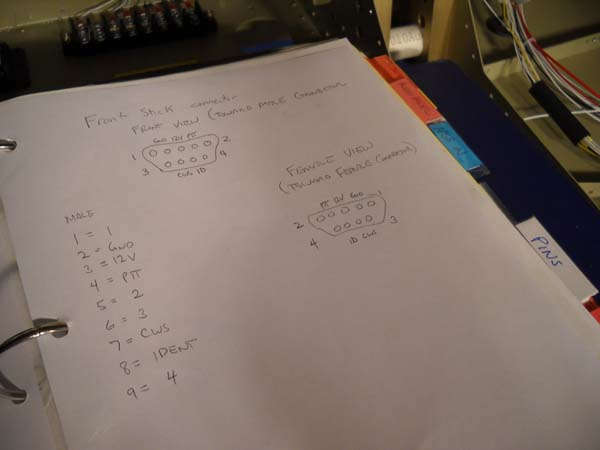 Front Stick connector
FRONT VIEW (TOWARD MALE CONNECTOR
GND 12V PTT
1 2
3 4
CWS ID
FEMALE VIEW
(TOWARD FEMALE CONNECTOR)
PTT 12V GND
2 1
4 3
ID CWS
MALE
1 = 1
2 = GND
3 = 12V
4 = PTT
5 = 2
6 = 3
7 = CWS
8 = IDENT
9 = 4
PINS